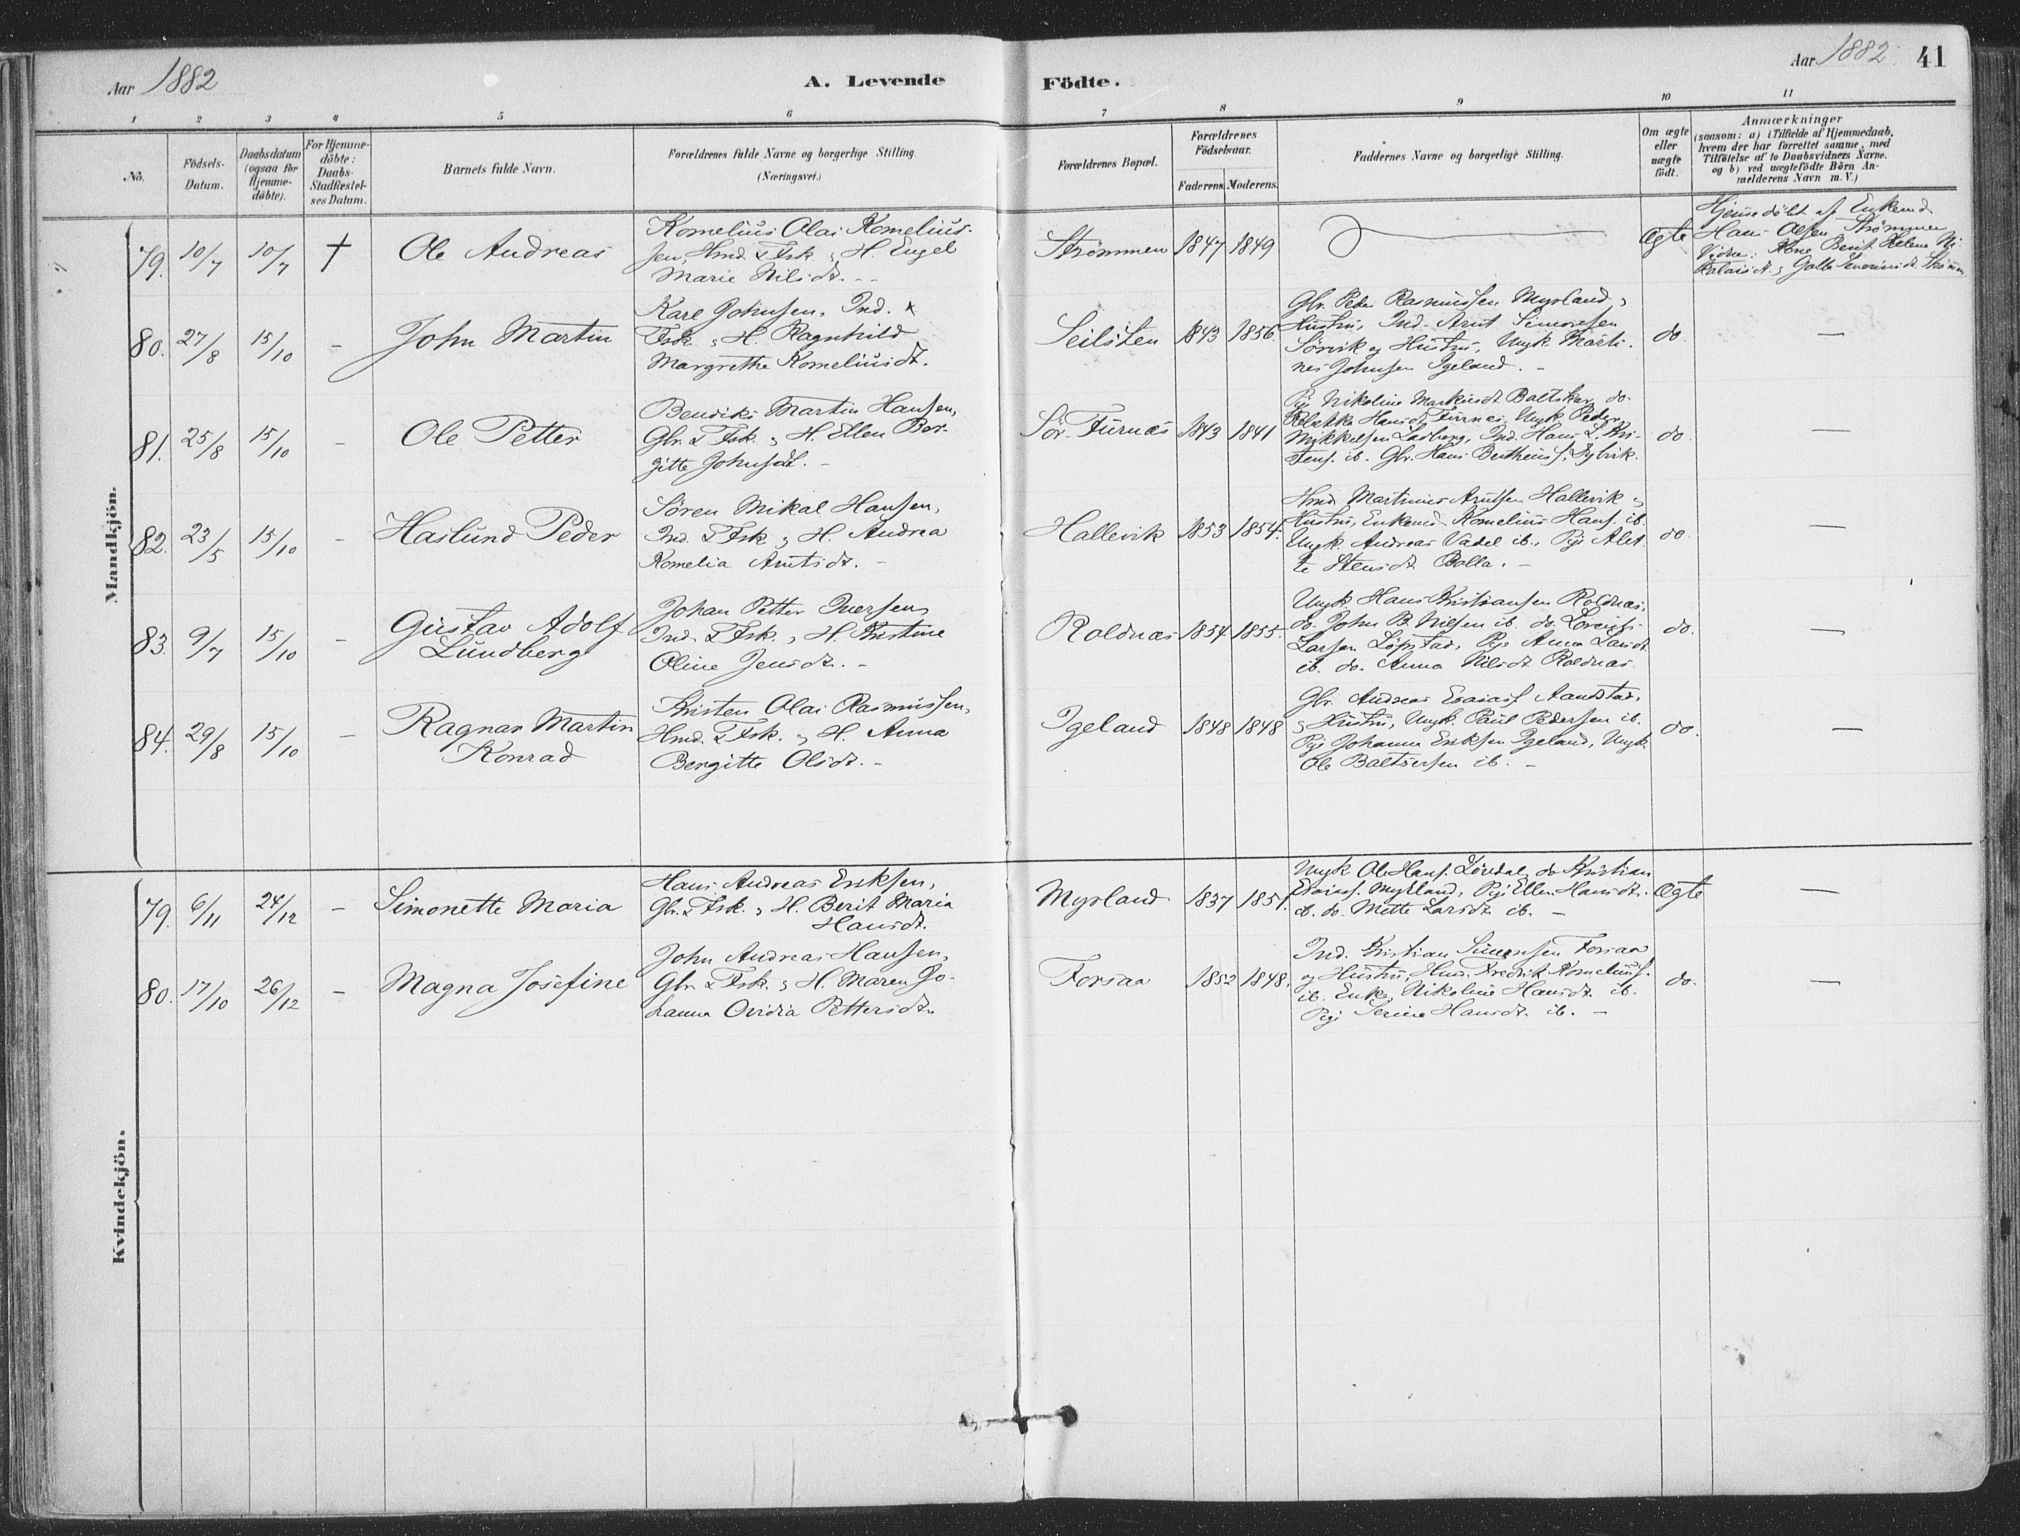 Aar 1882
A. Levende
Födte.
Aar 1882.
41
1 2 3 4 5 6 7 8 9 10 11
No.
Födsels-
Datum.
Daabsdatum
(ogsaa for
Hjemme-
döbte).
For Hjemme-
döbte:
Daabs-
Stadfæstel-
ses Datum.
Barnets fulde Navn.
Forældrenes fulde Navne og borgerlige Stilling.
(Næringsvei.)
Forældrenes Bopæl.
Forældrenes
Födselsaar.
Faderens. Moderens.
Faddernes Navne og borgerlige Stilling.
Om ægte
eller
uægte
födt.
Anmærkninger
(saasom: a) i Tilfælde af Hjemmedaab,
hvem der har forrettet samme, med
Tilföielse af to Daabsvidners Navne.
og b) ved uægtefödte Börn An-
melderens Navn m. V.)
Mandkjön.
79. 10/7 10/7 † Ole Andreas
Kornelius Olai Kornelius-
sen, Hmd. & Fsk. og H. Engel
Marie Nilsdt. -
Strømmen 1847 1849
Ægte
Hjemmedøbt af Enkemd
Hans Olsen Strømmen
Vidner: Kone Berit Helene Ni-
kolaisdt. og Severinsdt.
80. 27/8 15/10 - John Martin
Karl Johnsen, Ind. &
Fsk. og H. Ragnhild
Margrethe Korneliusdt.
Seilsten 1843 1856.
Gbr. Peder Rasmussen Myrland og
Hustru, Ind. Arnt Simonsen
Sørvik og Hustru, Ungk. Marti-
nes Johnsen Igeland. -
do. -
81. 25/8 15/10 - Ole Petter
Bendiks Martin Hansen,
Gbr. & Fsk. og H. Ellen Ber-
gitte Johnsdt. -
Sør-Furnæs 1843 1841
Pige Nikoline Markusdt. do.
Hansdt. Furnæs, Ungk. Peder
Mykkelsen Ind. Hans L. Kri-
stens. ib. Gbr. Hans
do. -
82. 23/5 15/10 - Haslund Peder
Søren Mikal Hansen,
Ind. & Fsk. og H. Andrea
Kornelia Arntsdt. -
Hallevik 1853 1854.
Hmd. Martinus Arntsen Hallevik og
Hustru, Enkemd. Kornelius Hans. ib.
Ungk. Andreas Vadel ib., Pige Alet-
te Stensdt. Bolla. -
do. -
83. 9/7 15/10 - Gustav Adolf
Lundberg
Johan Petter Iversen,
Ind. & Fsk. og H. Kristine
Oline Jensdt. -
Roldnæs 1854 1855.
Ungk. Hans Kristiansen Roldnæs,
do. John B. Nilsen ib. do.
Larsen Løpstad, Pige Anna Larsdt.
ib. do. Anna Nilsdt. Roldnæs.
do. -
84. 29/8 15/10 - Ragnar Martin
Konrad
Kristen Olai Rasmussen,
Hmd. & Fsk. og H. Anna
Bergitte Olsdt. -
Igeland 1848 1848
Gbr. Andreas Esaias. Aandstad
og Hustru, Ungk. Paul Pedersen ib.
Pige Johanna Eriksen Igeland, Ungk.
Ole Baltsersen ib. -
do. -
Kvindekjön.
79. 6/11 24/12 - Simonette Maria
Hans Andreas Eriksen,
Gbr. & Fsk. og H. Berit Maria
Hansdt.
Myrland 1837 1851.
Ungk. Ole Hans. do. Kristian
Esaias. Myrland, Pige Ellen Hansdt.
ib. do. Mette Larsdt. ib. -
Ægte -
80. 17/10 26/12 - Magna Josefine
John Andreas Hansen,
Gbr. & Fsk. og H. Maren Jo-
hanna Ovidia Pettersdt.
Forsaa 1852 1848.
Ind. Kristian Simonsen Forsaa
og Hustru, Hmd. Fredrik Kornelius.
ib. Enke Nikoline Hansdt. ib.
Pige Serine Hansdt. ib. -
do. -